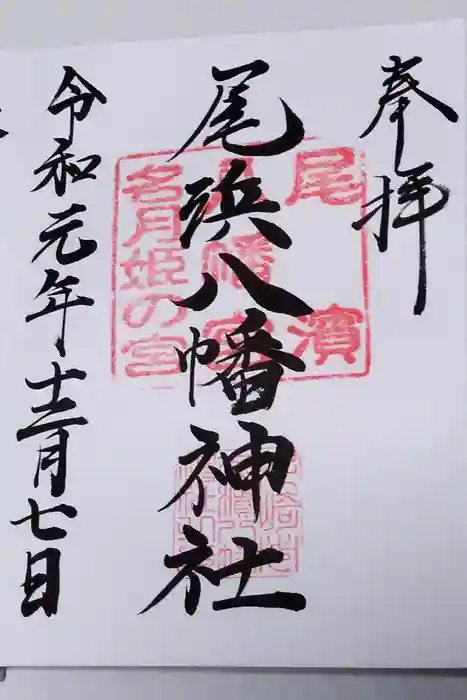 奉拝
尾浜八幡神社
尾濱
八幡宮
名月姫の宮
令和元年十二月七日